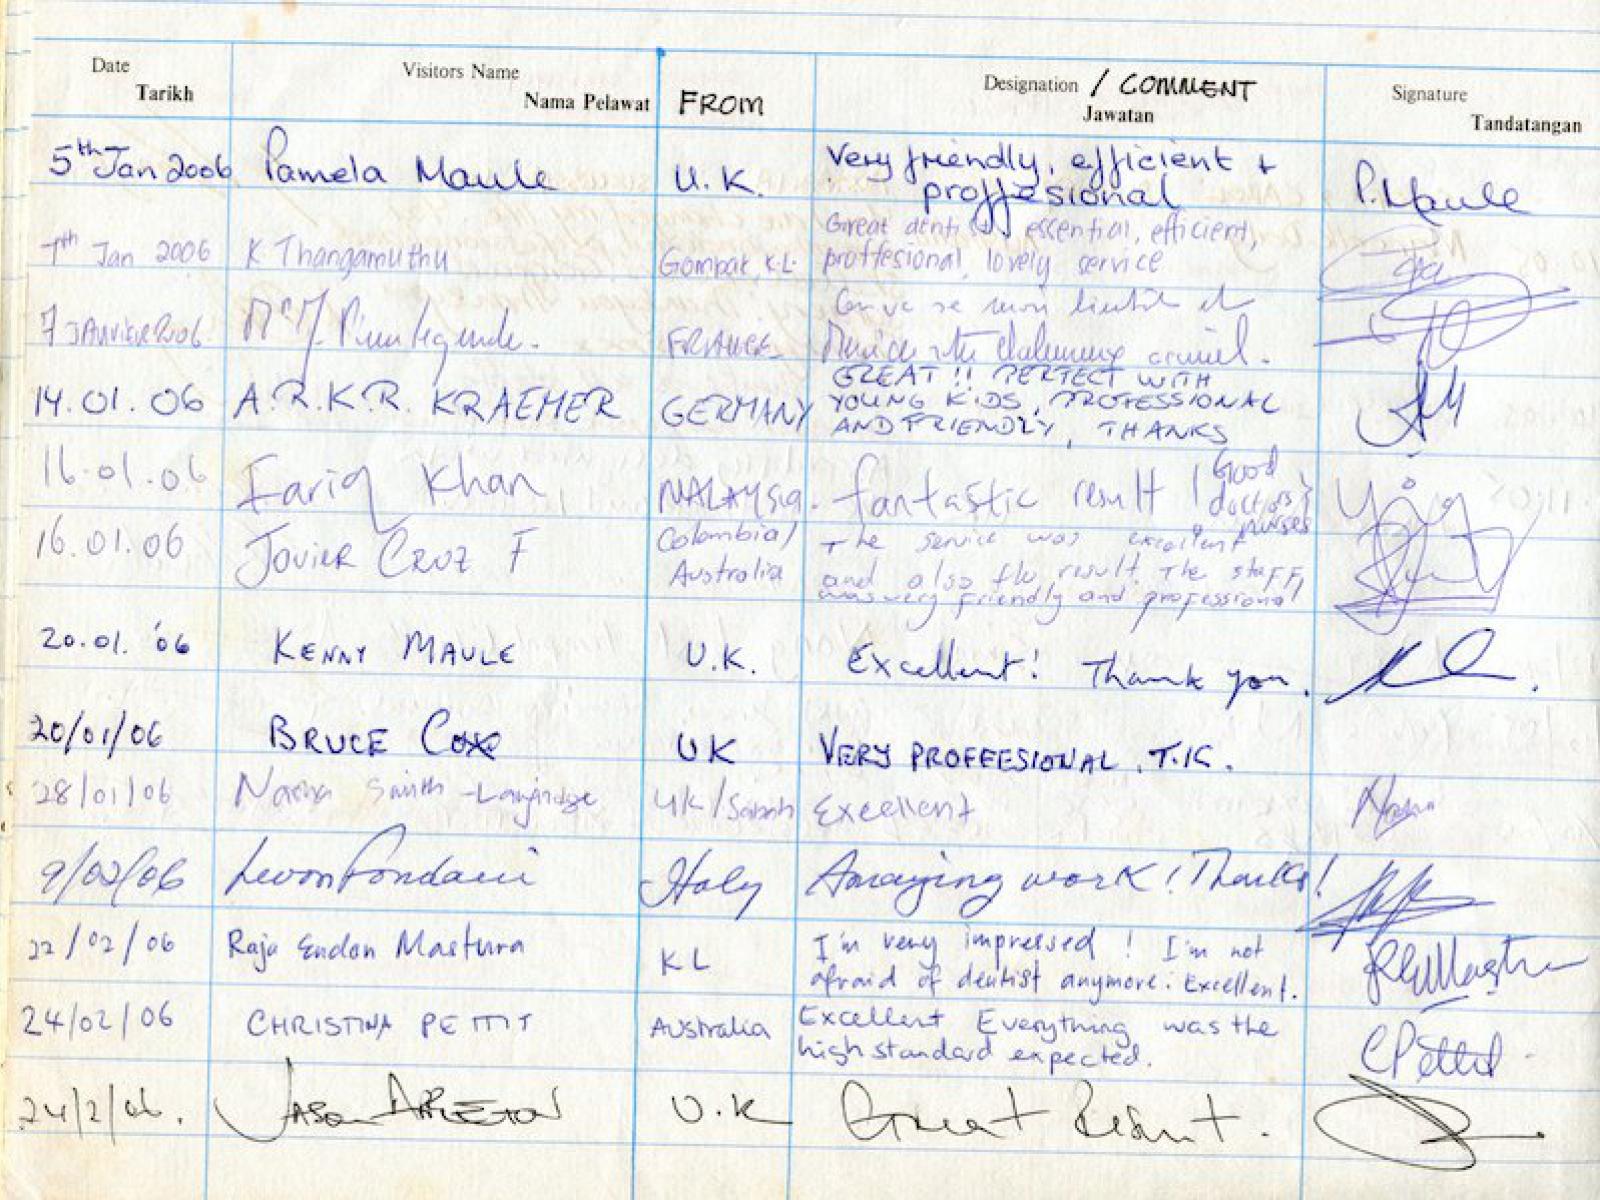 Date Visitors Name Designation / COMMENT Signature
Tarikh Nama Pelawat FROM Jawatan Tandatangan
5th Jan 2006 Pamela Maule U.K. Very friendly, efficient +
proffesional P. Maule
7th Jan 2006 K Thangamuthu Gombak, K.L. Great dentist, essential, efficient,
proffesional, lovely service
7 JANVIER 2006 FRANCE
14.01.06 A.R.K.R. KRAEMER GERMANY GREAT !! PERFECT WITH
YOUNG KIDS, PROFESSIONAL
AND FRIENDLY, THANKS
16.01.06 Fariq Khan MALAYSIA. fantastic result ! Good
doctors
nurses
16.01.06 Javier Cruz F Colombia/
Australia The service was excellent
and also the result. The staff
was very friendly and professional
20.01.'06 KENNY MAULE U.K. Excellent! Thank you.
20/01/06 BRUCE COX UK VERY PROFFESIONAL. T.K.
28/01/06 Smith - UK/Sabah Excellent
9/02/06 Italy Amazing work! Thanks!
22/02/06 Raja Endon Mastura KL I'm very impressed! I'm not
afraid of dentist anymore. Excellent.
24/02/06 CHRISTINA PETTIT Australia Excellent Everything was the
high standard expected. C Pettit
24/2/06. JASON APPLETON U.K Great Result.